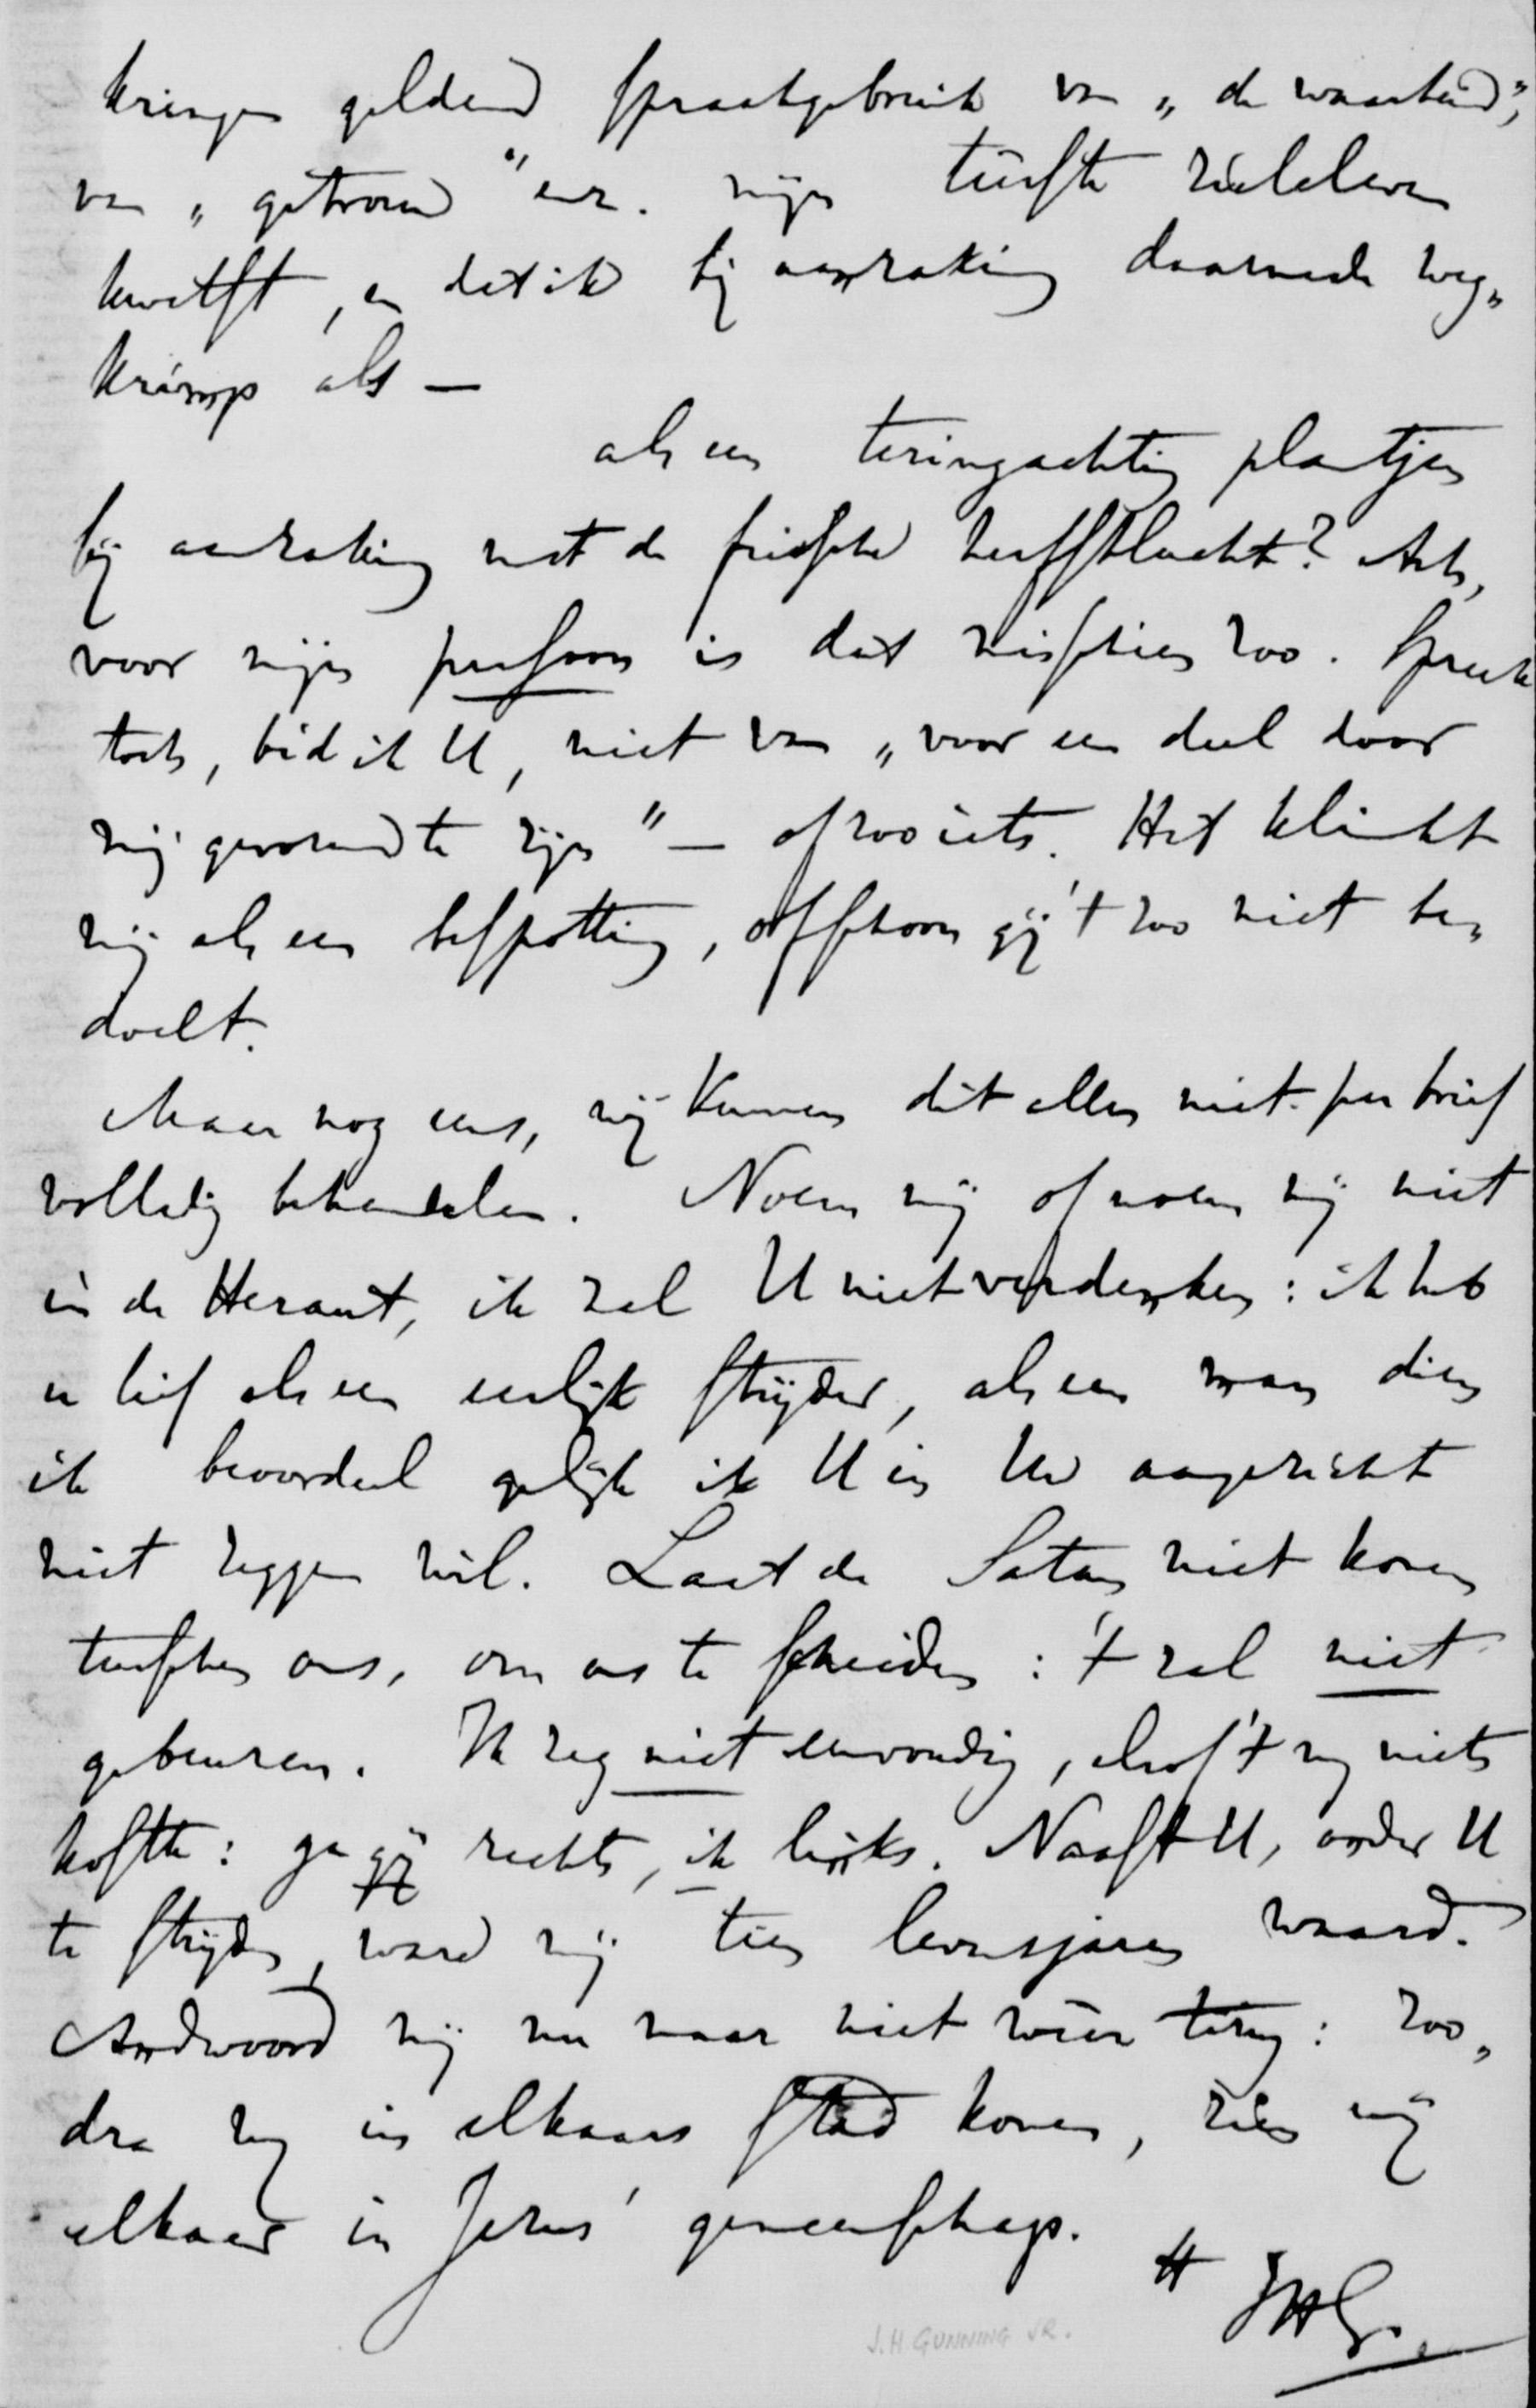 kringen geldend spraakgebruik van „de waarheid",
van „getrouw" enz. mijn teerste zieleleven
kwetst, en dat ik bij aanraking daarmede weg„
krimp als —
als een teringachtig plantjen
bij aanraking met de frissche herfstlucht? Ach,
voor mijn persoon is dat misschien zoo. Spreek
toch, bid ik U, niet van „voor een deel door
mij gevormd te zijn" — of zoo iets. Het klinkt
mij als een bespotting, ofschoon gij 't zoo niet be„
doelt.
Maar nog eens, wij kunnen dit alles niet per brief
volledig behandelen. Noem mij of noem mij niet
in de Heraut, ik zal U niet verdenken: ik heb
u lief als een eerlijk strijder, als een man dien
ik beoordeel gelijk ik U in Uw aangezicht
niet zeggen wil. Laat de Satan niet komen
tusschen ons, om ons te scheiden: 't zal niet
gebeuren. Ik zeg niet eenvoudig, alsof 't mij niets
kostte: ga gij rechts, ik links. Naast U, onder U
te strijden, ware mij tien levensjaren waard.
Andwoord mij nu maar niet weer : zoo„
dra wij in elkaars stad komen, zien wij
elkaar in Jezus' gemeenschap.
tt JHG.
J.H GUNNING JR.